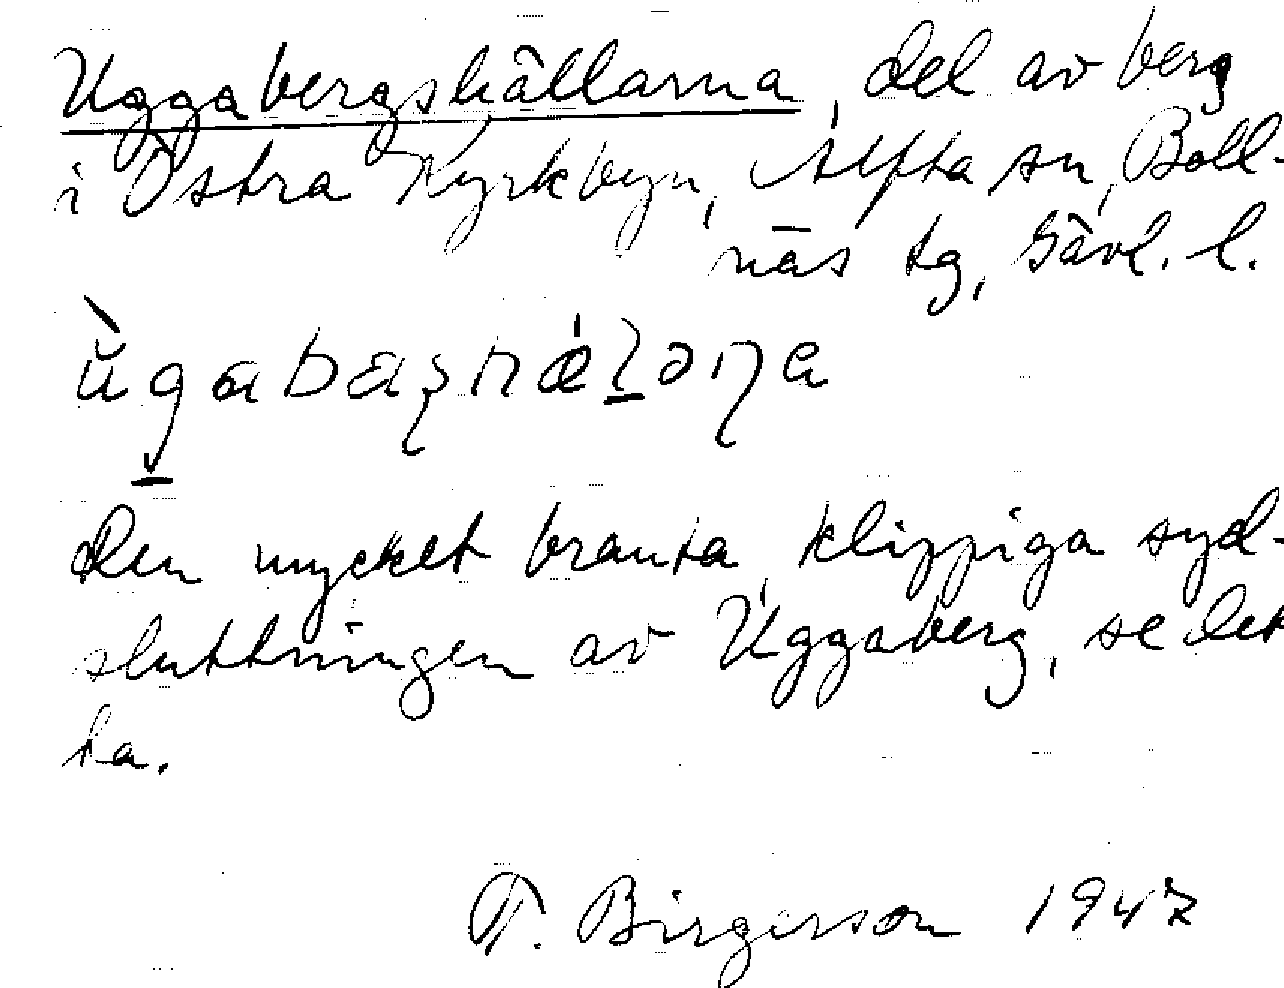 Uggabergshällarna, del av berg
i Östra Kyrkbyn, Alfta sn, Boll-
näs tg, Gävl. l.
ùgabaʂhǽlaɳa
Den mycket branta, klippiga syd-
sluttningen av Uggaberg, se det
ta.
T. Birgerson 1947